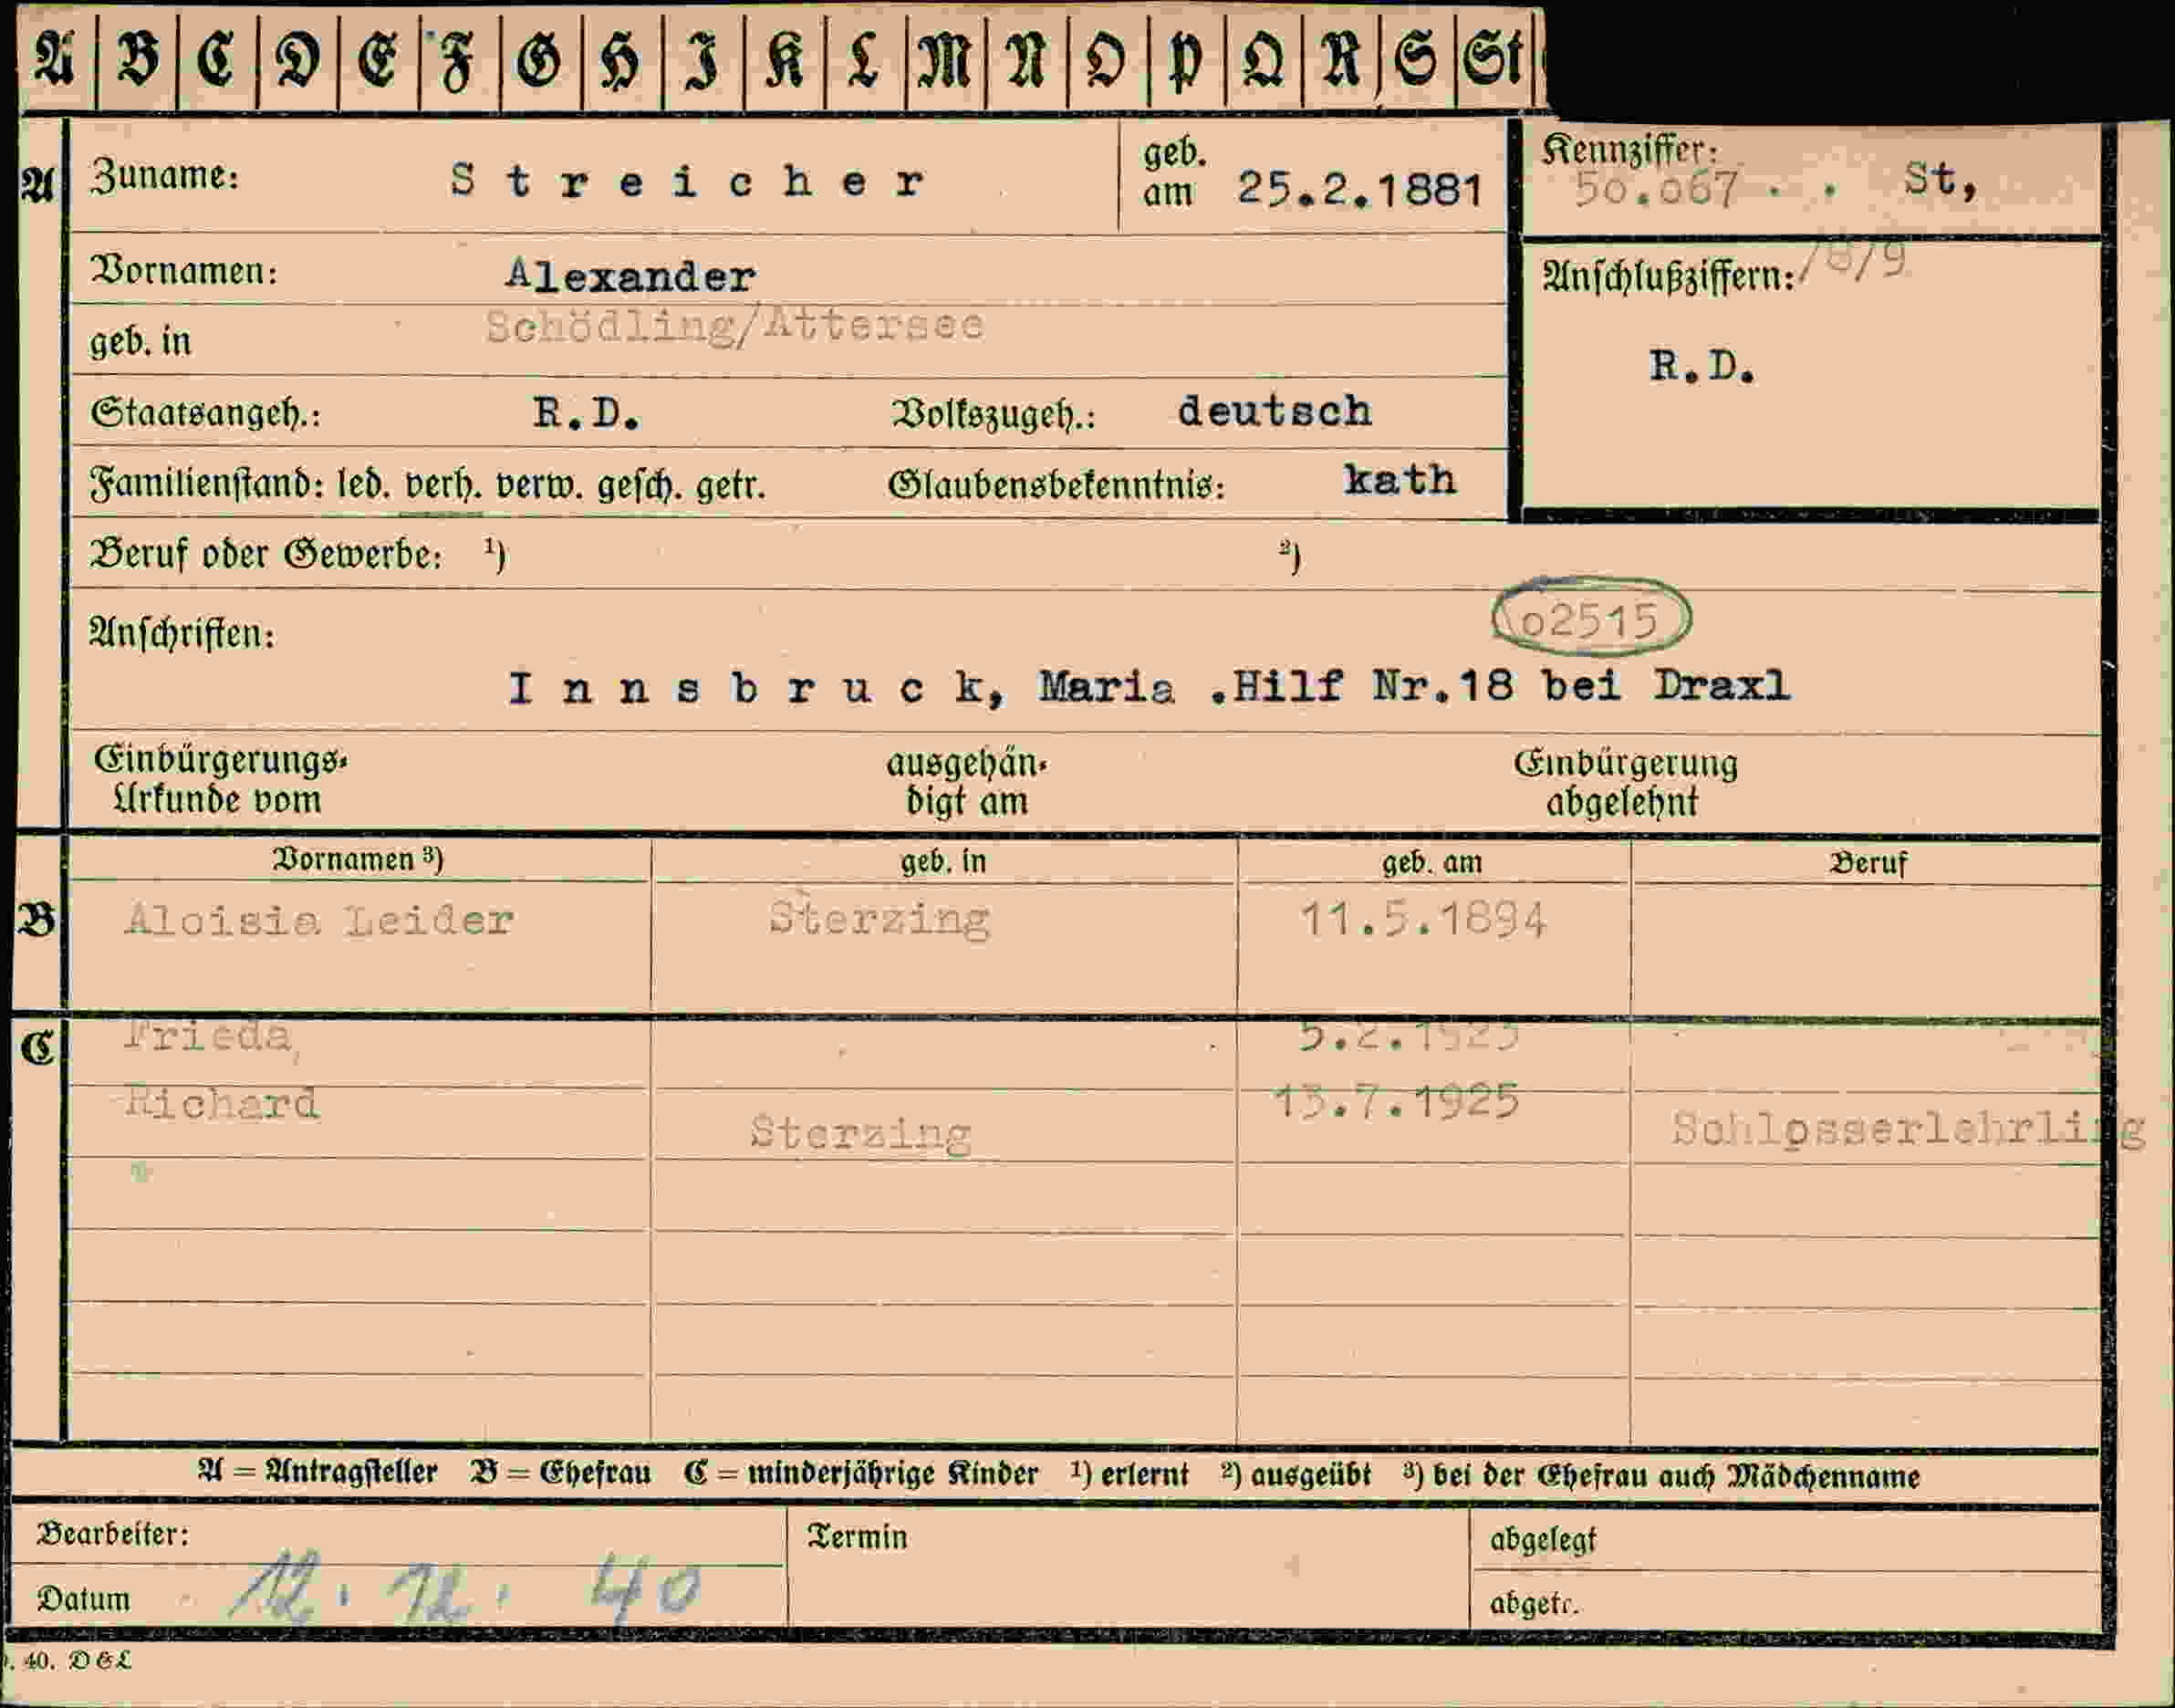 A B C D E F G H I K L M N O P Q R S St
A Zuname: Streicher geb. am 25.2.1881 Kennziffer: 50.067 . . St,
Vornamen: Alexander Anschlußziffern: /8/9
geb. in Schödling/Attersee
R.D.
Staatsangeh.: R.D. Volkszugeh.: deutsch
Familienstand: led. verh. verw. gesch. getr. Glaubensbekenntnis: kath
Beruf oder Gewerbe: 1) 2)
Anschriften: 02515
Innsbruck, Maria .Hilf Nr.18 bei Draxl
Einbürgerungs- ausgehän- Einbürgerung
Urkunde vom digt am abgelehnt
Vornamen 3) geb. in geb. am Beruf
B Aloisia Leider Sterzing 11.5.1894
C Frieda, 5.2.1923
Richard 13.7.1925
Sterzing Schlosserlehrling
A = Antragsteller B = Ehefrau C = minderjährige Kinder 1) erlernt 2) ausgeübt 3) bei der Ehefrau auch Mädchenname
Bearbeiter: Termin abgelegt
Datum 12. 12. 40 abgetr.
. 40. D&L